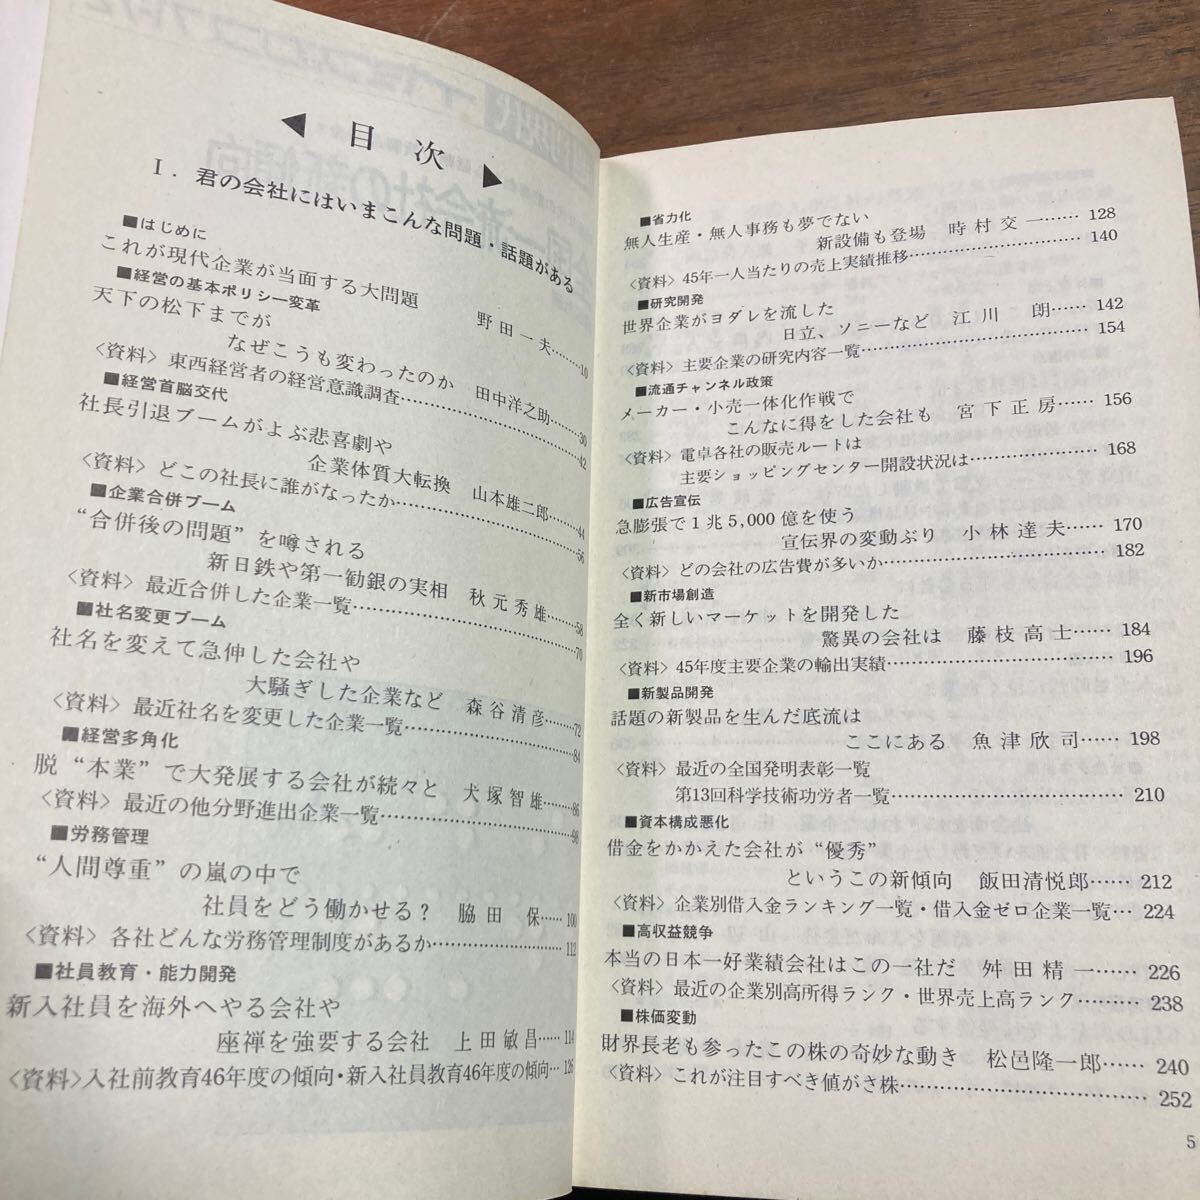 ◀ 目次 ▶
I. 君の会社にはいまこんな問題・話題がある
■はじめに
これが現代企業が当面する大問題
野田一夫……10
■経営の基本ポリシー変革
天下の松下までが
なぜこうも変わったのか 田中洋之助……30
〈資料〉東西経営者の経営意識調査……42
■経営首脳交代
社長引退ブームがよぶ悲喜劇や
企業体質大転換 山本雄二郎……44
〈資料〉どこの社長に誰がなったか……56
■企業合併ブーム
“合併後の問題”を噂される
新日鉄や第一勧銀の実相 秋元秀雄……58
〈資料〉最近合併した企業一覧……70
■社名変更ブーム
社名を変えて急伸した会社や
大騒ぎした企業など 森谷清彦……72
〈資料〉最近社名を変更した企業一覧……84
■経営多角化
脱“本業”で大発展する会社が続々と 犬塚智雄……86
〈資料〉最近の他分野進出企業一覧……98
■労務管理
“人間尊重”の嵐の中で
社員をどう働かせる? 脇田 保……100
〈資料〉各社どんな労務管理制度があるか……112
■社員教育・能力開発
新入社員を海外へやる会社や
座禅を強要する会社 上田敏昌……114
〈資料〉入社前教育46年度の傾向・新入社員教育46年度の傾向…126
■省力化
無人生産・無人事務も夢でない
新設備も登場 時村交一……128
〈資料〉45年一人当たりの売上実績推移……140
■研究開発
世界企業がヨダレを流した
日立、ソニーなど 江川 朗……142
〈資料〉主要企業の研究内容一覧……154
■流通チャンネル政策
メーカー・小売一体化作戦で
こんなに得をした会社も 宮下正房……156
〈資料〉電卓各社の販売ルートは
主要ショッピングセンター開設状況は……168
■広告宣伝
急膨張で1兆5,000億を使う
宣伝界の変動ぶり 小林達夫……170
〈資料〉どの会社の広告費が多いか……182
■新市場創造
全く新しいマーケットを開発した
驚異の会社は 藤枝高士……184
〈資料〉45年度主要企業の輸出実績……196
■新製品開発
話題の新製品を生んだ底流は
ここにある 魚津欣司……198
〈資料〉最近の全国発明表彰一覧
第13回科学技術功労者一覧……210
■資本構成悪化
借金をかかえた会社が“優秀”
というこの新傾向 飯田清悦郎……212
〈資料〉企業別借入金ランキング一覧・借入金ゼロ企業一覧…224
■高収益競争
本当の日本一好業績会社はこの一社だ 舛田精一……226
〈資料〉最近の企業別高所得ランク・世界売上高ランク……238
■株価変動
財界長老も参ったこの株の奇妙な動き 松邑隆一郎……240
〈資料〉これが注目すべき値がさ株……252
5